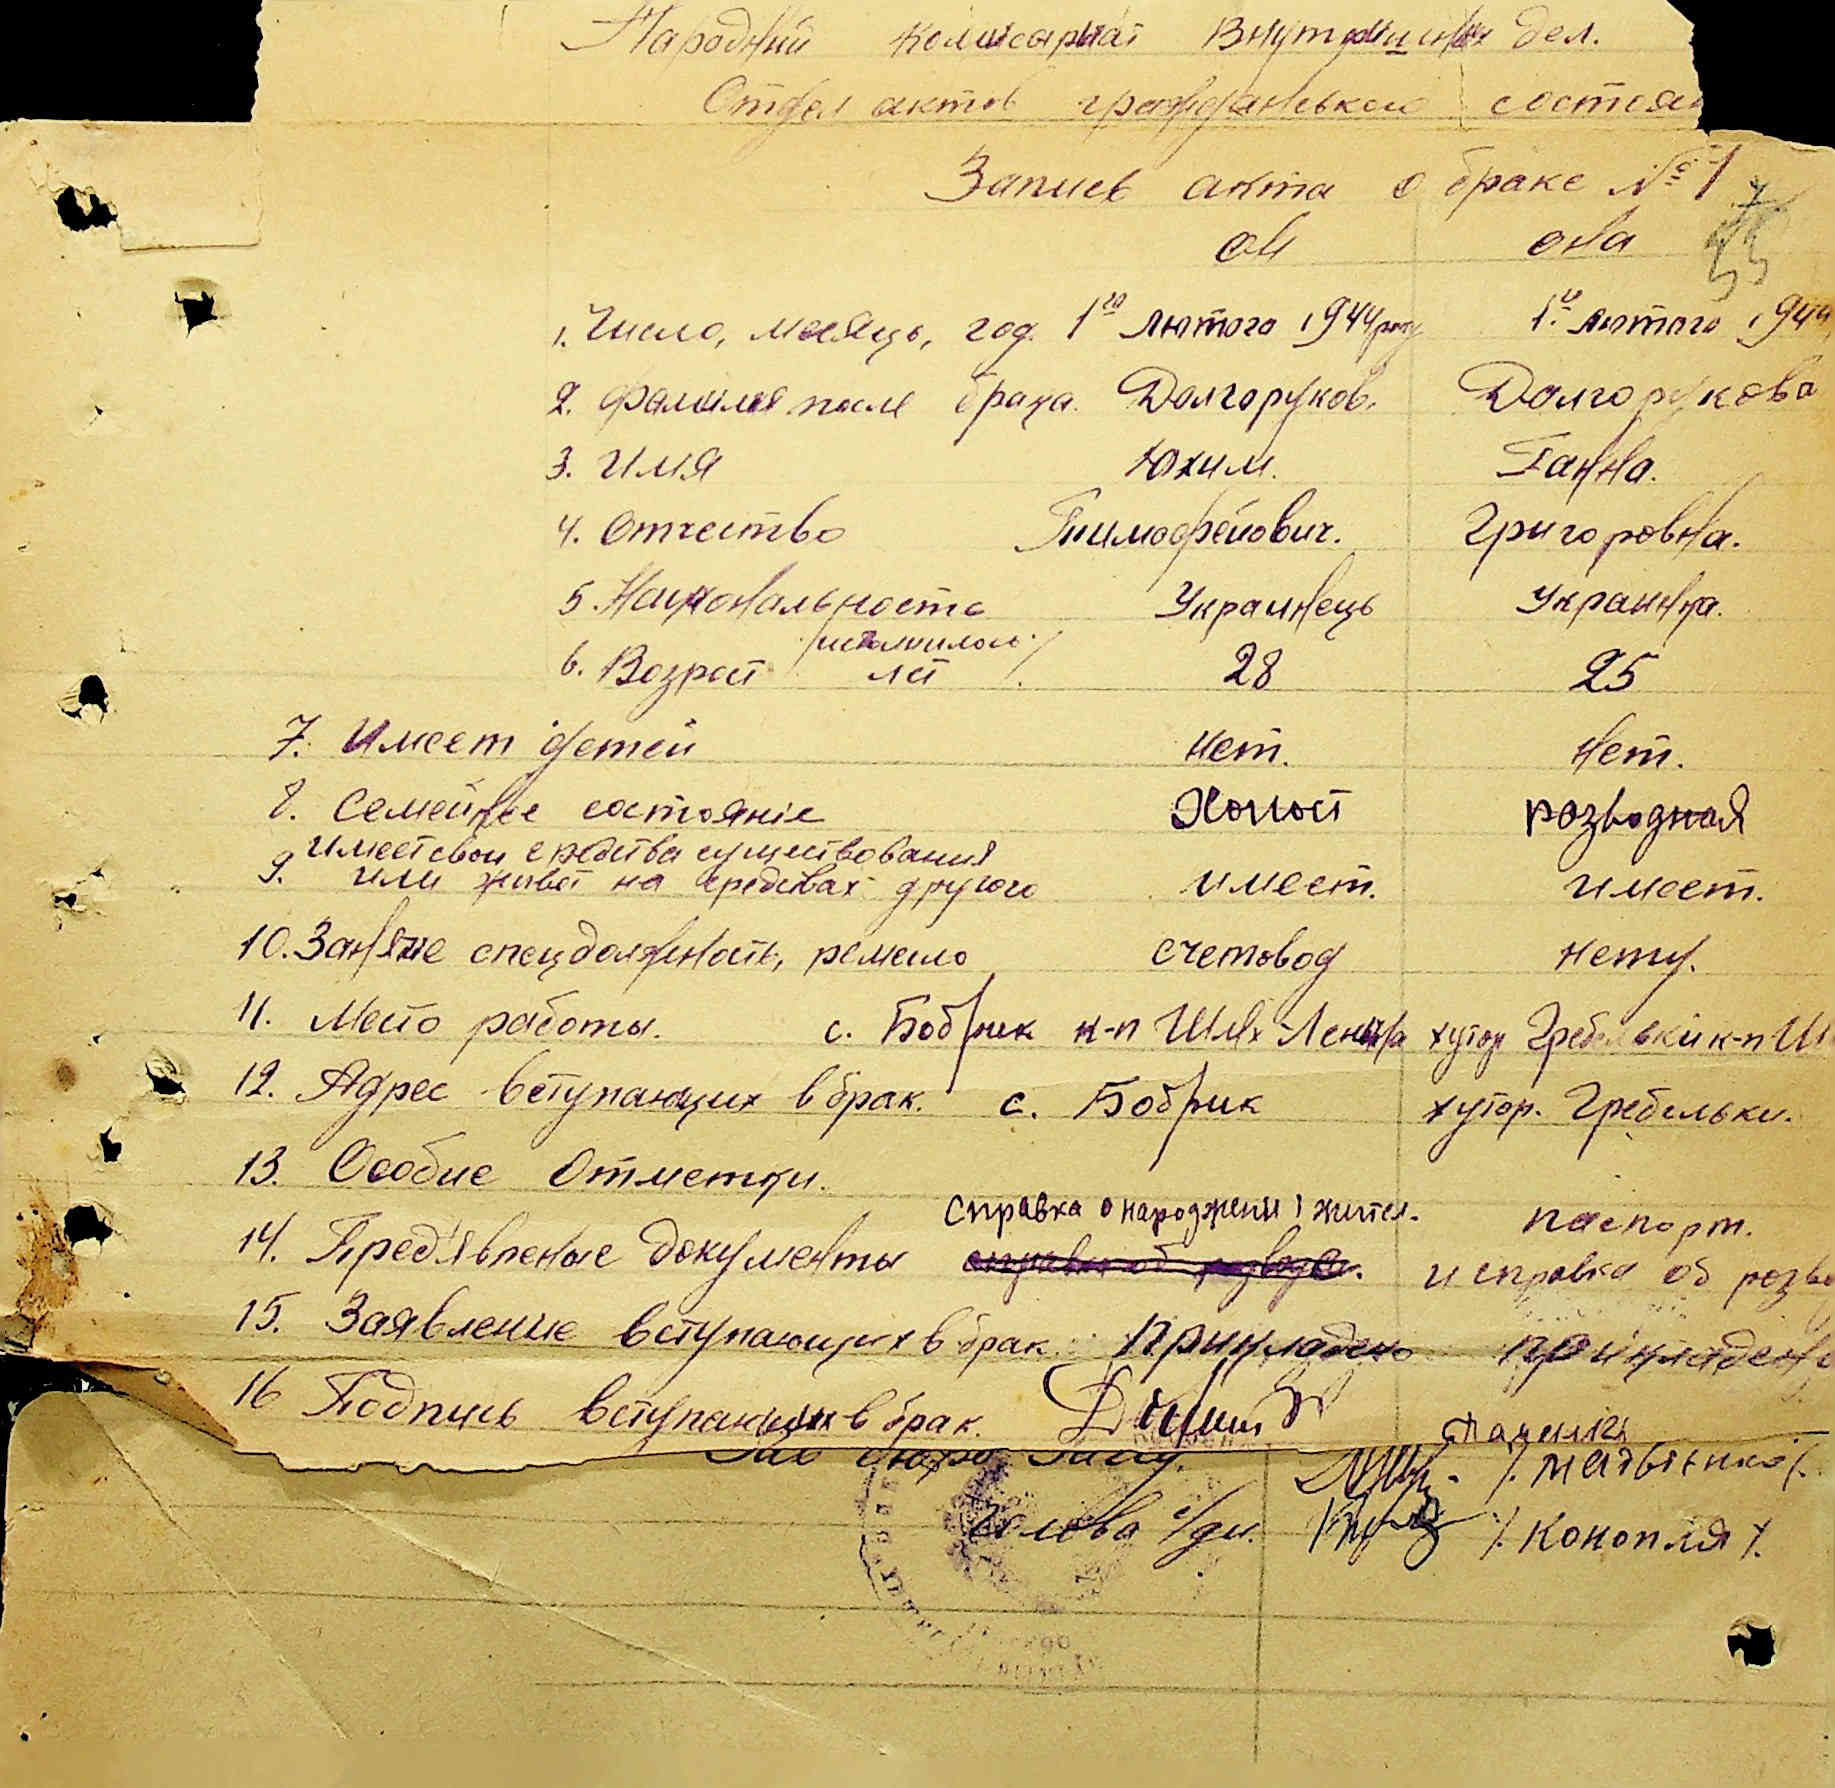 Народний комисариат Внутришних дел.
Отдел актов гражданського состоя
Запись акта о браке № 1
он она
1. Число, месяць, год. 1го лютого 1944 року 1го лютого 1944
2. Фамилия после брака. Долгоруков. Долгорукова
3. Имя Юхим. Ганна.
4. Отчество Тимофейович. Григоровна.
5. Национальность Украинець Украинка.
6. Возраст /исполнилось лет/ 28 25
7. Имеет детей нет. нет.
8. Семейное состояніе Холост розводная
9. Имеет свои средства существования
или живет на средствах другого имеет. имеет.
10. Занятие спецдолжность, ремесло счетовод нету.
11. Место работы. с. Бобрик к-п Шлях Леніна хутор Гребельки к-п Ш
12. Адрес вступающих в брак. с. Бобрик хутор. Гребельки.
13. Особие отметки.
справка о народжени і жител. паспорт.
14. Предъявленые документы справка об розводе. и справка об розво
15. Заявление вступающих в брак Прикладено прикладено
16 Подпись вступающих в брак.
Зав бюро Загсу. /Матвіенко/.
Голова с/ди. /Конопля/.